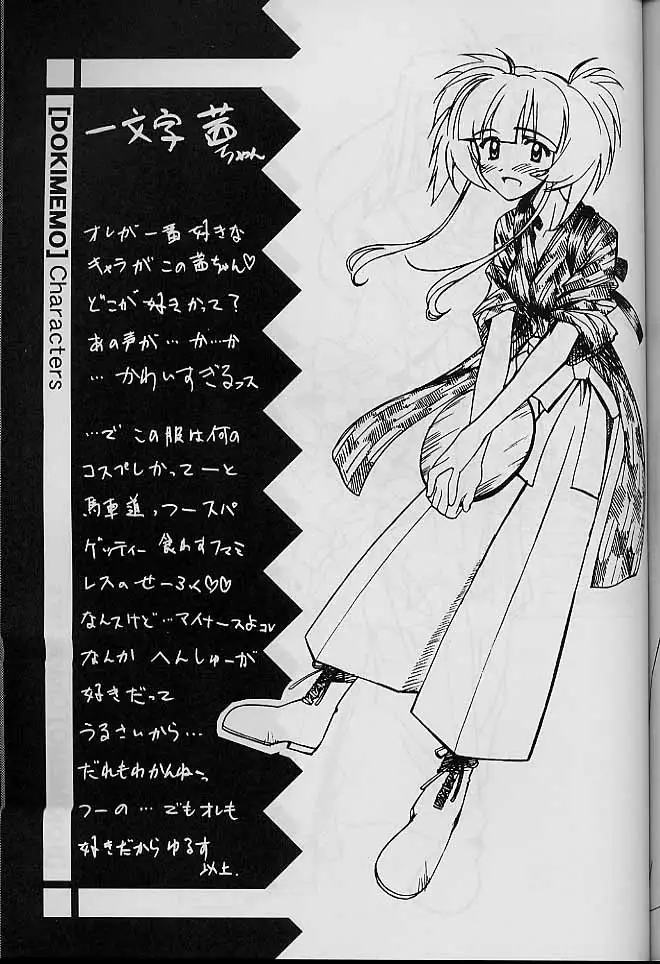 【DOKIMEMO】Characters
一文字 茜
ちゃん
オレが一番好きな
キャラがこの茜ちゃん♡
どこが好きかって?
あの声が…か…か
…かわいすぎるっス
…で この服は何の
コスプレかってーと
馬車道っつースパ
ゲッティー食わすファミ
レスのせーふく♡♡
なんスけど…マイナースよコレ
なんか へんしゅーが
好きだって
うるさいから…
だれもわかんねーっ
つーの…でもオレも
好きだからゆるす
以上.